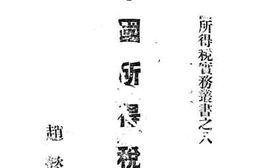 所得稅實務叢書之
國所得稅
趙